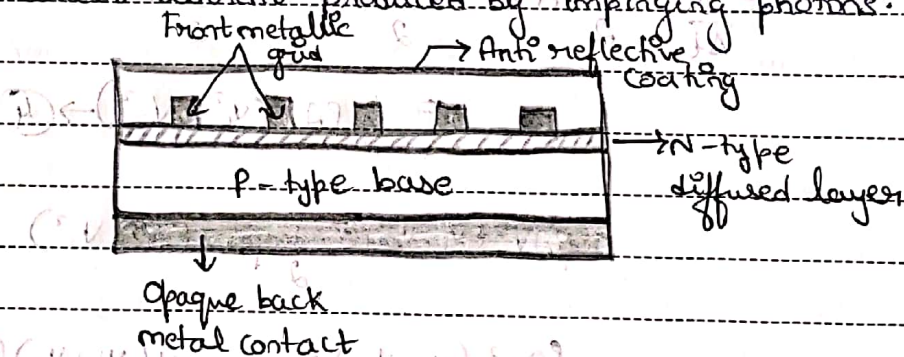 produced by impinging photons.
Front metallic
grid
Anti reflective
coating
N-type
diffused layer
P-type base
Opaque back
metal contact